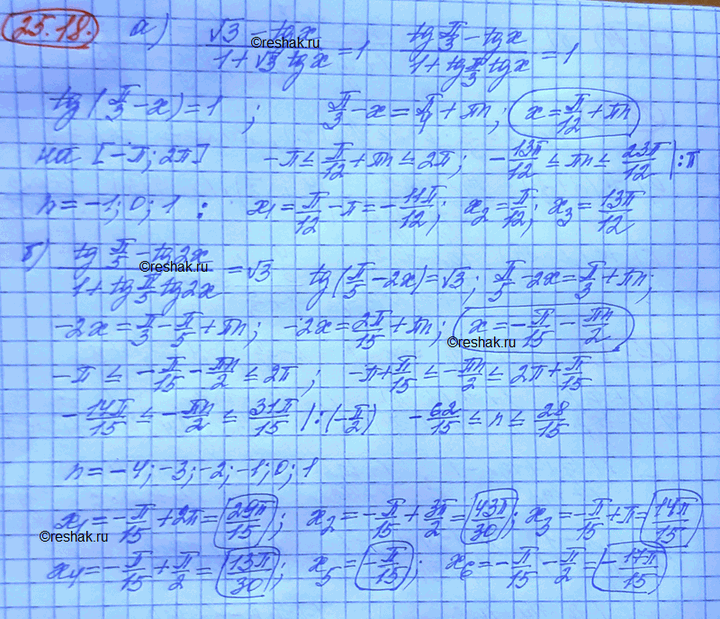 25.18. а) (√3 - tgx)/(1+√3 tgx) = 1 (tg π/3 - tgx)/(1+tg π/3 tgx) = 1
tg(π/3 - x) = 1 ; π/3 - x = π/4 + πn; x = π/12 + πn
на [-π; 2π] -π ≤ π/12 + πn ≤ 2π; -13π/12 ≤ πn ≤ 23π/12 | :π
n = -1; 0; 1 : x₁ = π/12 - π = -11π/12; x₂ = π/12; x₃ = 13π/12
б) (tg π/5 - tg2x)/(1+tg π/5 tg2x) = √3 tg(π/5 - 2x) = √3; π/5 - 2x = π/3 + πn;
-2x = π/3 - π/5 + πn; -2x = 2π/15 + πn; x = -π/15 - πn/2
-π ≤ -π/15 - πn/2 ≤ 2π ; -π + π/15 ≤ -πn/2 ≤ 2π + π/15
-14π/15 ≤ -πn/2 ≤ 31π/15 | : (-π/2) -62/15 ≤ n ≤ 28/15
n = -4; -3; -2; -1; 0; 1
x₁ = -π/15 + 2π = 29π/15; x₂ = -π/15 + 3π/2 = 43π/30; x₃ = -π/15 + π = 14π/15
x₄ = -π/15 + π/2 = 13π/30; x₅ = -π/15; x₆ = -π/15 - π/2 = -17π/15
©reshak.ru
©reshak.ru
©reshak.ru
©reshak.ru